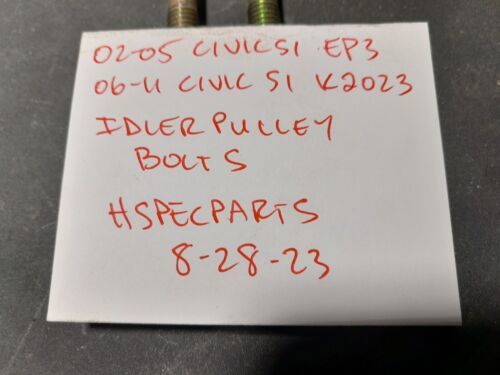 02-05 CIVIC SI EP3
06-11 CIVIC SI K20Z3
IDLER PULLEY
BOLTS
HSPECPARTS
8-28-23